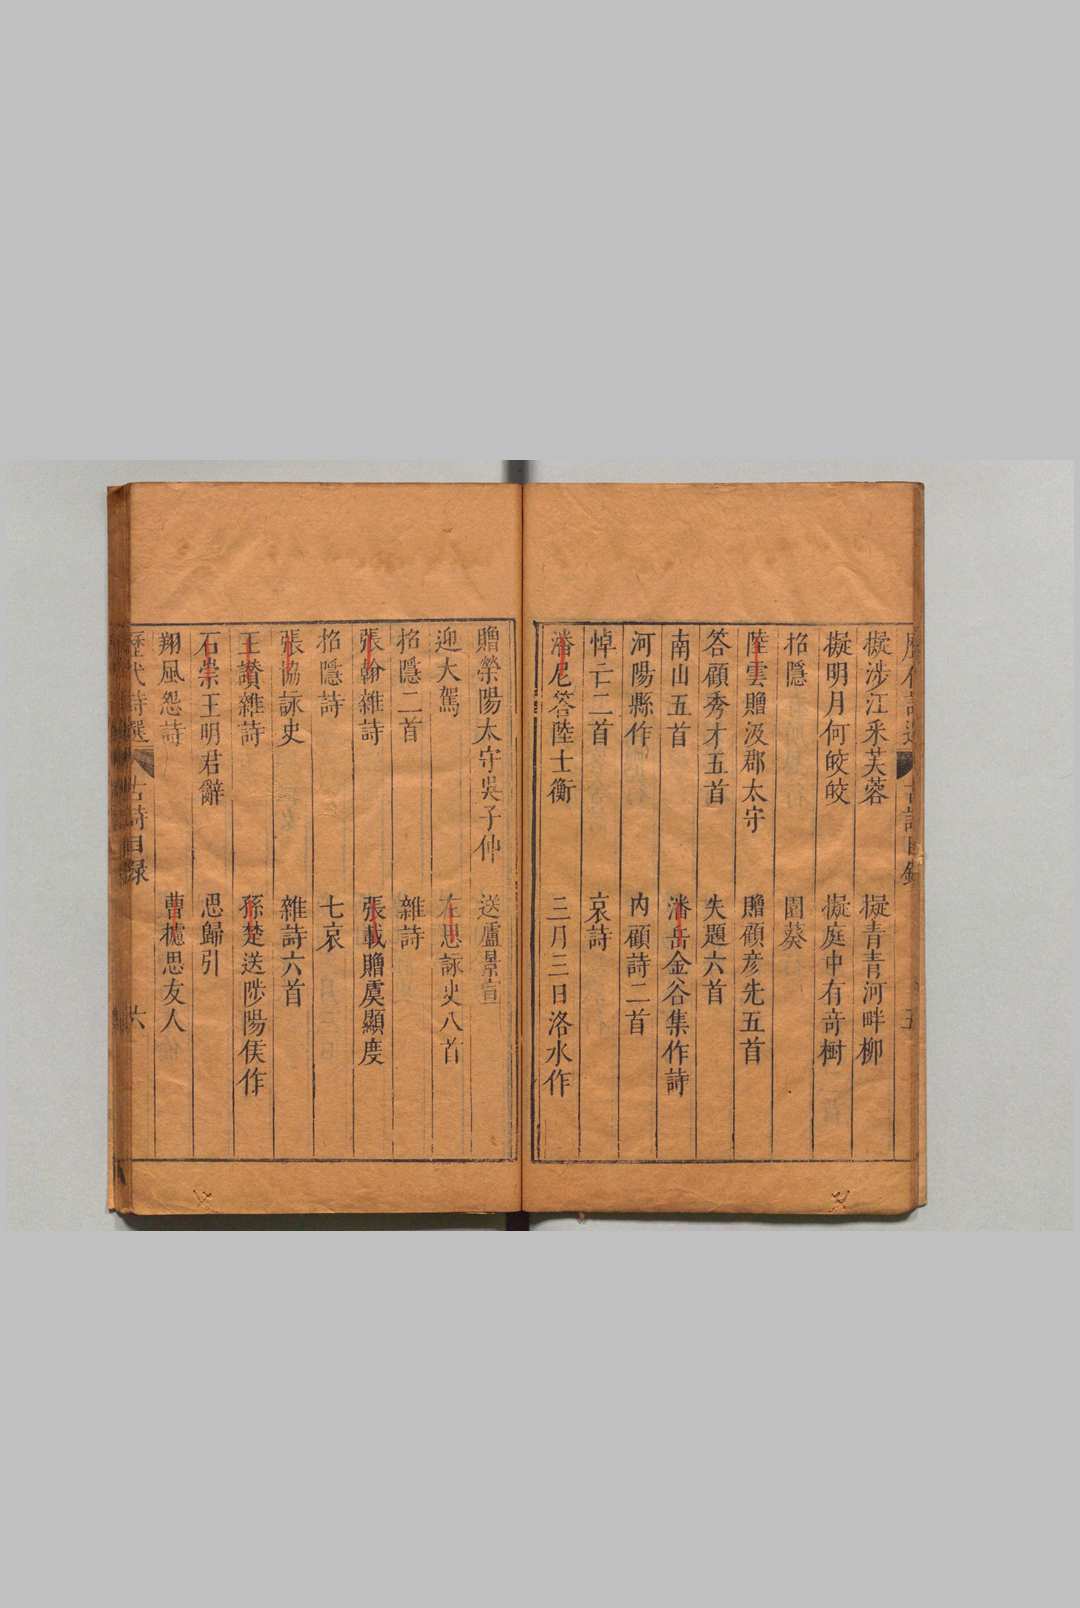 歷代詩選 古詩目錄 五
擬涉江采芙蓉 擬青青河畔柳
擬明月何皎皎 擬庭中有奇樹
招隱 園葵
陸雲贈汲郡太守 贈顧彥先五首
答顧秀才五首 失題六首
南山五首 潘岳金谷集作詩
河陽縣作 內顧詩二首
悼亡二首 哀詩
潘尼答陸士衡 三月三日洛水作
贈滎陽太守吳子仲 送盧景宣
迎大駕 左思詠史八首
招隱二首 雜詩
張翰雜詩 張載贈虞顯度
招隱詩 七哀
張協詠史 雜詩六首
王讚雜詩 孫楚送陟陽侯作
石崇王明君辭 思歸引
翔風怨詩 曹攄思友人
歷代詩選 古詩目録 六